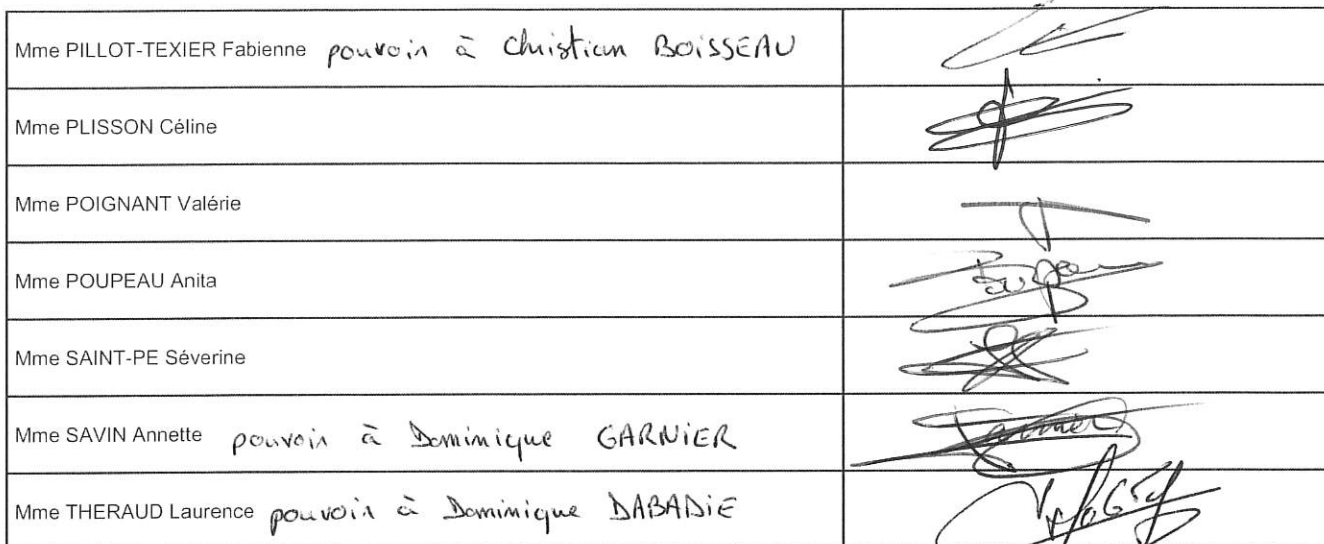 Mme PILLOT-TEXIER Fabienne pouvoir à Christian BOISSEAU
Mme PLISSON Céline
Mme POIGNANT Valérie
Mme POUPEAU Anita
Mme SAINT-PE Séverine
Mme SAVIN Annette pouvoir à Dominique GARNIER
Mme THERAUD Laurence pouvoir à Dominique DABADIE